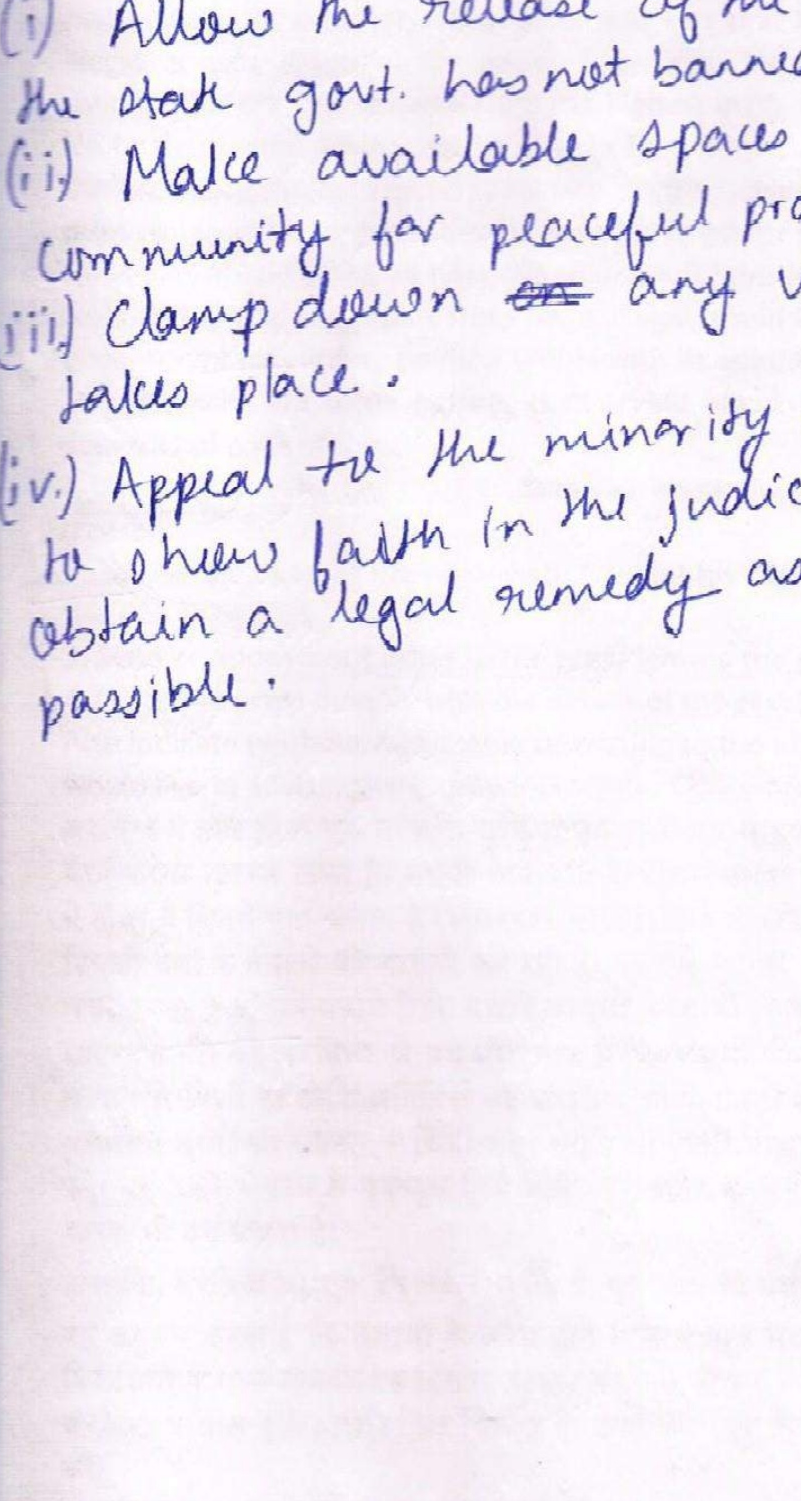 (i) Allow the release of the
the state govt. has not banned
(ii) Make available spaces
community for peaceful pro
(iii) Clamp down any
takes place.
(iv.) Appeal to the minority
to show faith in the judic
obtain a legal remedy as
possible.